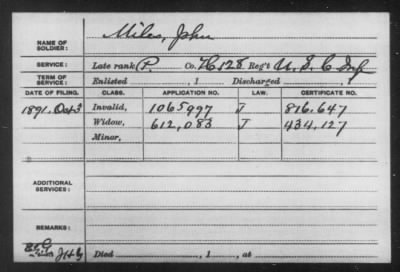 NAME OF SOLDIER: Miles, John
SERVICE: Late rank P. Co. H, 128 Reg't U. S. C. Inf
TERM OF SERVICE: Enlisted , 1 Discharged , 1
DATE OF FILING. CLASS. APPLICATION NO. LAW. CERTIFICATE NO.
1891. Oct 3 Invalid, 1065997 J 816.647
Widow, 612,083 J 434,127
Minor,
ADDITIONAL SERVICES:
REMARKS:
Died , 1 , at